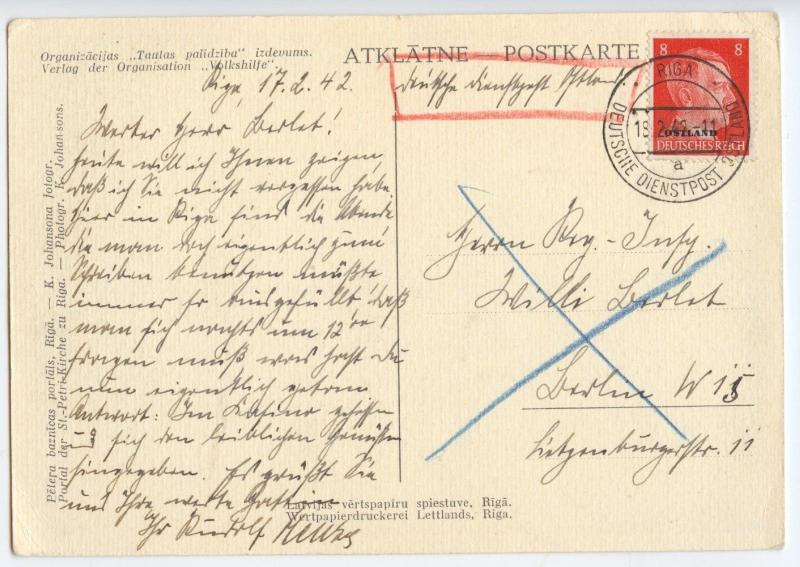 Organizācijas „Tautas palīdzība" izdevums.
Verlag der Organisation „Volkshilfe".
ATKLĀTNE POSTKARTE
Riga, 17.2.42.
Deutsche Dienstpost Ostland
8 8
OSTLAND
DEUTSCHES REICH
RIGA
18.2.42-11
a
DEUTSCHE DIENSTPOST OSTLAND
Werter Herr Berlet!
Heute will ich Ihnen zeigen,
daß ich Sie nicht vergessen habe
hier in Riga sind die Abende
die man doch eigentlich zum
Schreiben benutzen müßte
immer so ausgefüllt daß
man sich nachts um 12°°
fragen muß was hast Du
nun eigentlich getan
Antwort: Im Kasino gesessen
und sich den leiblichen Genüssen
hingegeben. Es grüßt Sie
und Ihre werte Gattin
Ihr Rudolf
Herrn Reg.-Insp.
Willi Berlet
Berlin W 15
Lietzenburgerstr. 11
Pētera baznīcas portāls, Rīgā. — K. Johansona fotogr.
Portal der St.-Petri-Kirche zu Riga. — Photogr. K. Johansons.
Latvijas vērtspapīru spiestuve, Rīgā.
Wertpapierdruckerei Lettlands, Riga.